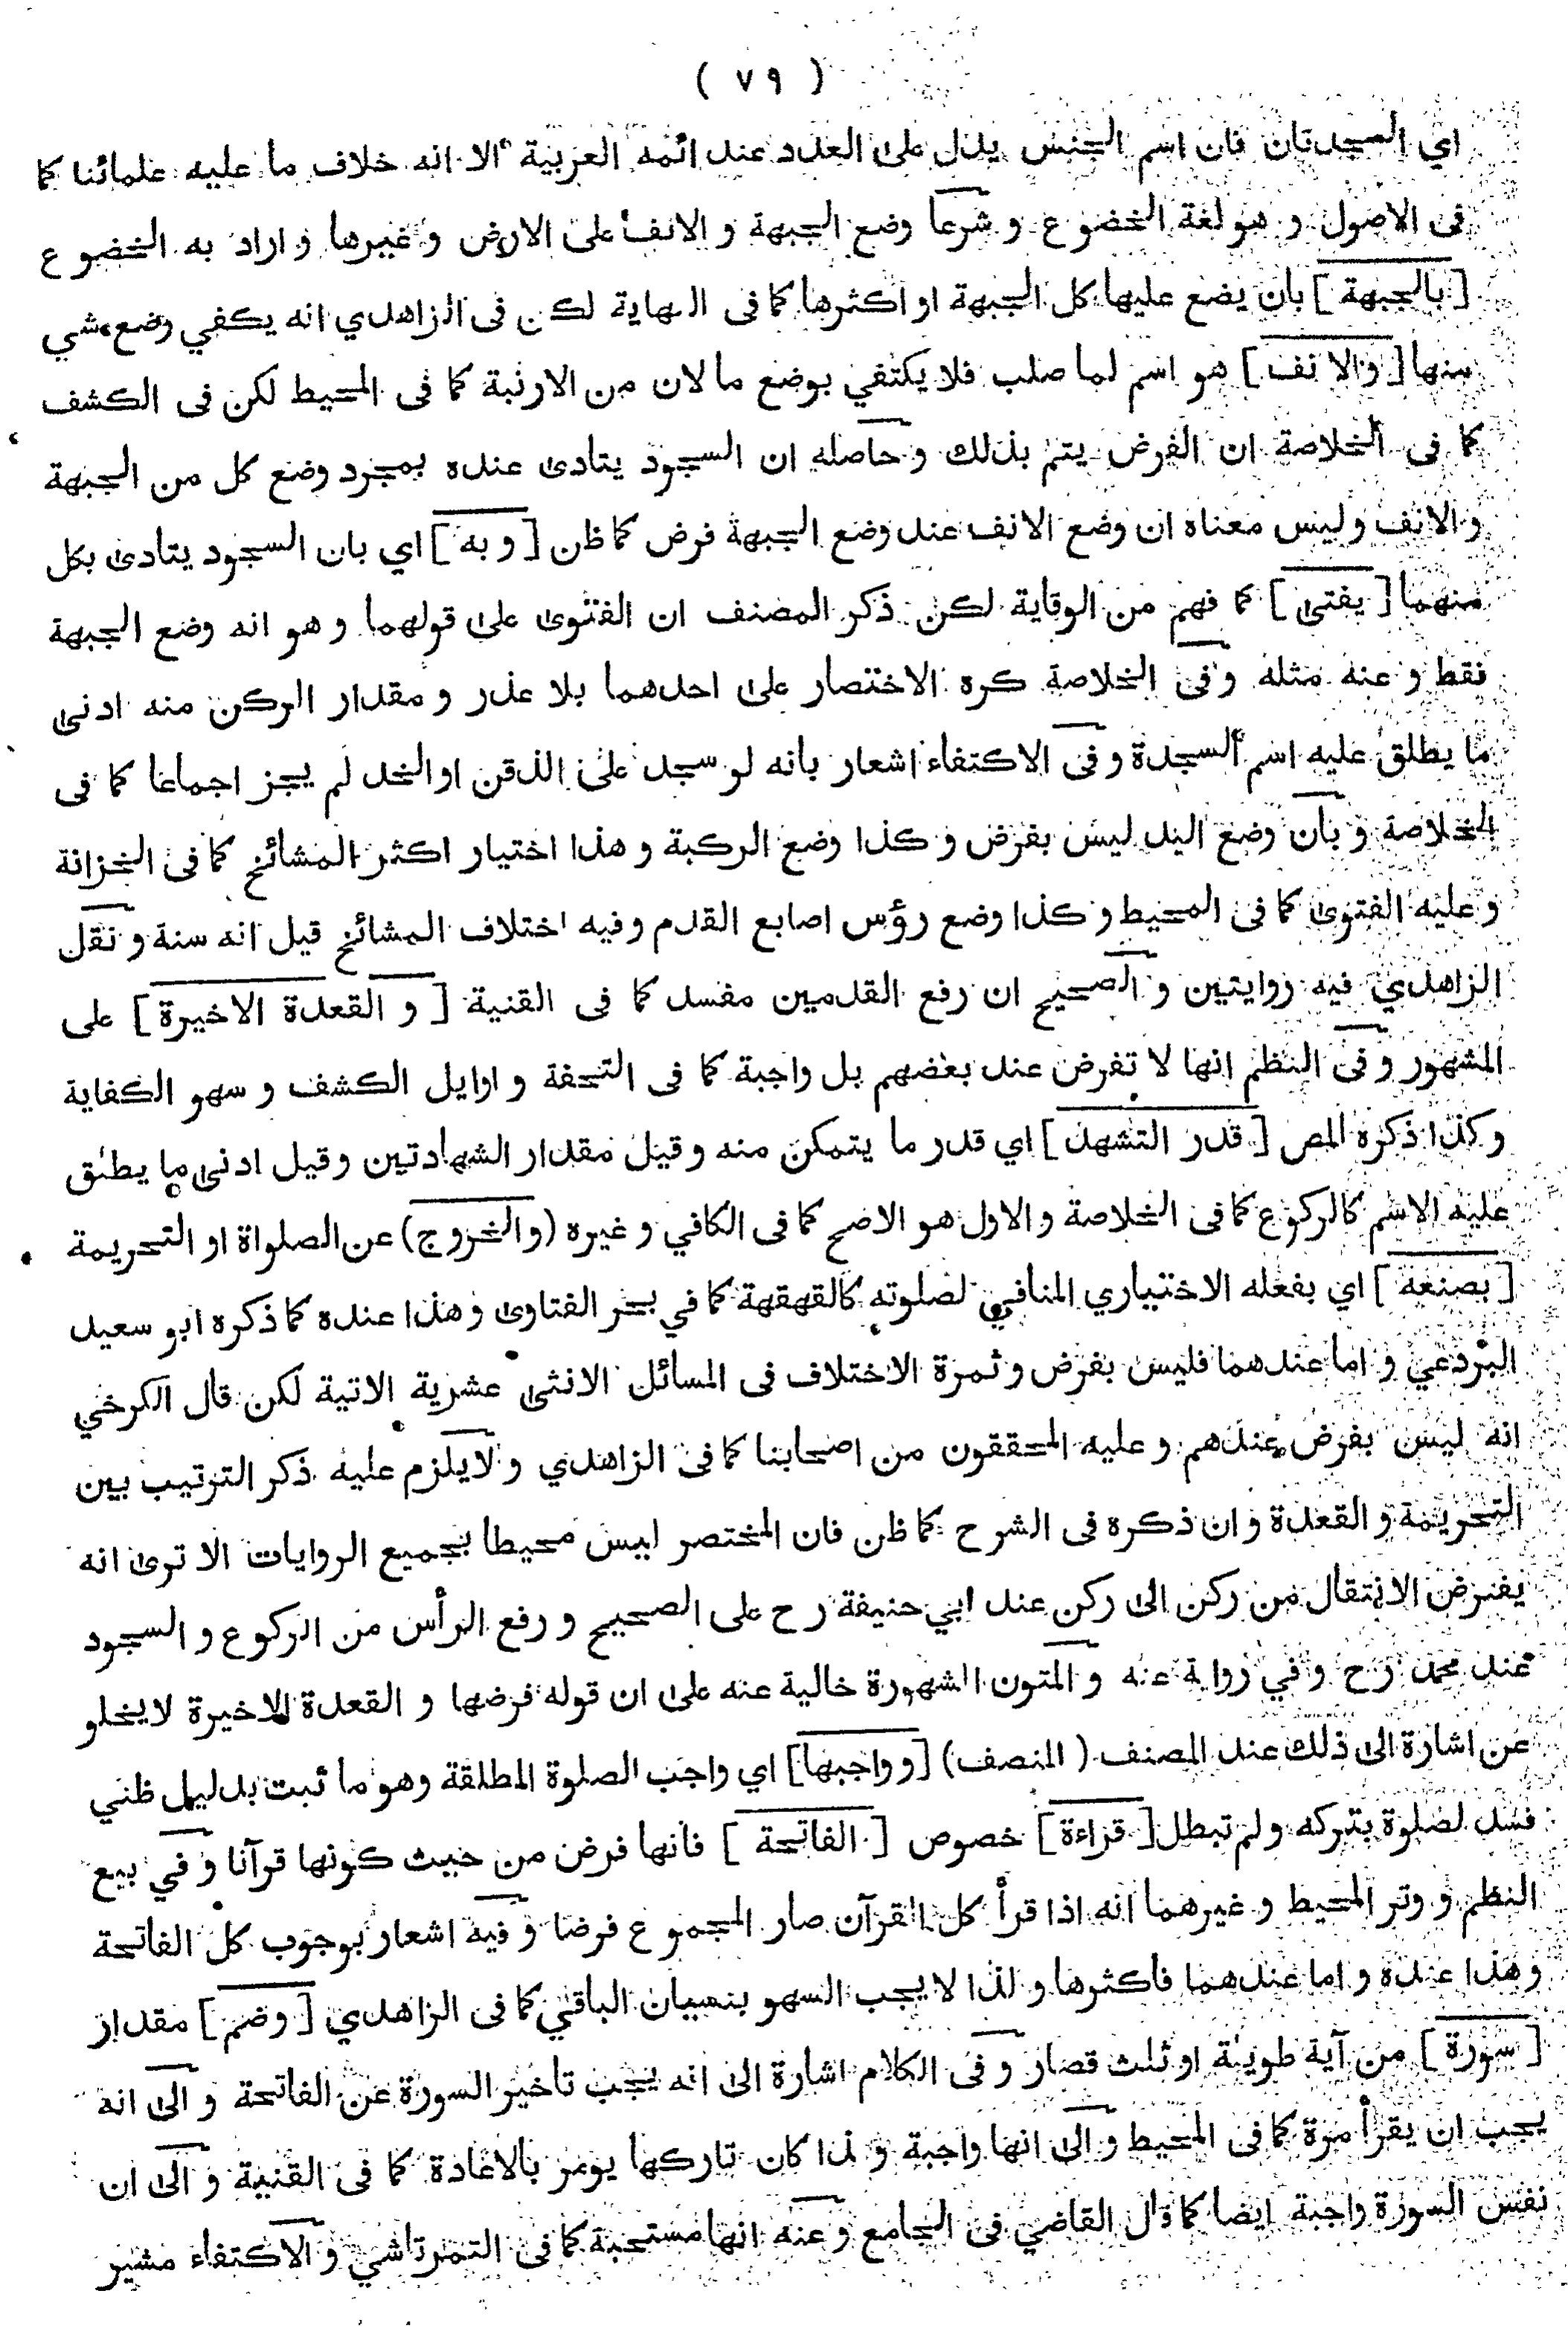 ( ٧٩ )
اي السجدتان فان اسم الجنس يدل على العدد عند ائمه العربية الا انه خلاف ما عليه علمائنا كما
فى الاصول و هو لغة الخضوع و شرعا وضع الجبهة و الانف على الارض و غيرها و اراد به الخضوع
[ بالجبهة ] بان يضع عليها كل الجبهة او اكثرها كما فى النهاية لكن فى الزاهدي انه يكفي وضع شي
منها [ والانف ] هو اسم لما صلب فلا يكتفي بوضع ما لان من الارنبة كما فى المحيط لكن فى الكشف
كما فى الخلاصة ان الفرض يتم بذلك و حاصله ان السجود يتادى عنده بمجرد وضع كل من الجبهة
و الانف و ليس معناه ان وضع الانف عند وضع الجبهة فرض كما ظن [ و به ] اي بان السجود يتادى بكل
منهما [ يفتى ] كما فهم من الوقاية لكن ذكر المصنف ان الفتوى على قولهما و هو انه وضع الجبهة
فقط و عنه مثله و فى الخلاصة كره الاختصار على احدهما بلا عذر و مقدار الركن منه ادنى
ما يطلق عليه اسم السجدة و فى الاكتفاء اشعار بانه لو سجد على الذقن او الخد لم يجز اجماعا كما فى
الخلاصة و بان وضع اليد ليس بفرض و كذا وضع الركبة و هذا اختيار اكثر المشائخ كما فى الخزانة
و عليه الفتوى كما فى المحيط و كذا وضع رؤس اصابع القدم و فيه اختلاف المشائخ قيل انه سنة و نقل
الزاهدي فيه روايتين و الصحيح ان رفع القدمين مفسد كما فى القنية [ و القعدة الاخيرة ] على
المشهور و فى النظم انها لا تفرض عند بعضهم بل واجبة كما فى التحفة و اوايل الكشف و سهو الكفاية
و كذا ذكره المص [ قدر التشهد ] اي قدر ما يتمكن منه و قيل مقدار الشهادتين و قيل ادنى ما يطلق
عليه الاسم كالركوع كما فى الخلاصة و الاول هو الاصح كما فى الكافي و غيره (والخروج) عن الصلواة او التحريمة
[ بصنعه ] اي بفعله الاختياري المنافي لصلوته كالقهقهة كما في بحر الفتاوى و هذا عنده كما ذكره ابو سعيد
البردعي و اما عندهما فليس بفرض و ثمرة الاختلاف فى المسائل الاثنى عشرية الاتية لكن قال الكرخي
انه ليس بفرض عندهم و عليه المحققون من اصحابنا كما فى الزاهدي و لا يلزم عليه ذكر الترتيب بين
التحريمة و القعدة و ان ذكره فى الشرح كما ظن فان المختصر ليس محيطا بجميع الروايات الا ترى انه
يفترض الانتقال من ركن الى ركن عند ابي حنيفة رح على الصحيح و رفع الرأس من الركوع و السجود
عند محمد رح و في رواية عنه و المتون المشهورة خالية عنه على ان قوله فرضها و القعدة الاخيرة لا يخلو
عن اشارة الى ذلك عند المصنف ( المنصف ) [ و واجبها ] اي واجب الصلوة المطلقة و هو ما ثبت بدليل ظني
فسد لصلوة بتركه و لم تبطل [ قراءة ] خصوص [ الفاتحة ] فانها فرض من حيث كونها قرآنا و في بيع
النظم و وتر المحيط و غيرهما انه اذا قرأ كل القرآن صار المجموع فرضا و فيه اشعار بوجوب كل الفاتحة
و هذا عنده و اما عندهما فاكثرها و لذا لا يجب السهو بنسيان الباقي كما فى الزاهدي [ و ضم ] مقدار
[ سورة ] من آية طويلة او ثلث قصار و فى الكلام اشارة الى انه يجب تاخير السورة عن الفاتحة و الى انه
يجب ان يقرأ مرة كما فى المحيط و الى انها واجبة و لذا كان تاركها يومر بالاعادة كما فى القنية و الى ان
نفس السورة واجبة ايضا كما قال القاضي فى الجامع و عنه انها مستحبة كما فى التمرتاشي و الاكتفاء مشير